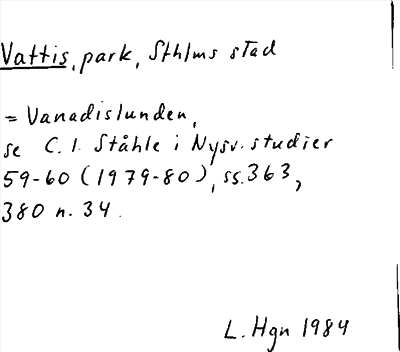 Vattis, park, Sthlms stad
= Vanadislunden,
se C. I. Ståhle i Nysv. studier
59-60 (1979-80), ss. 363,
380 n. 34.
L. Hgn 1984